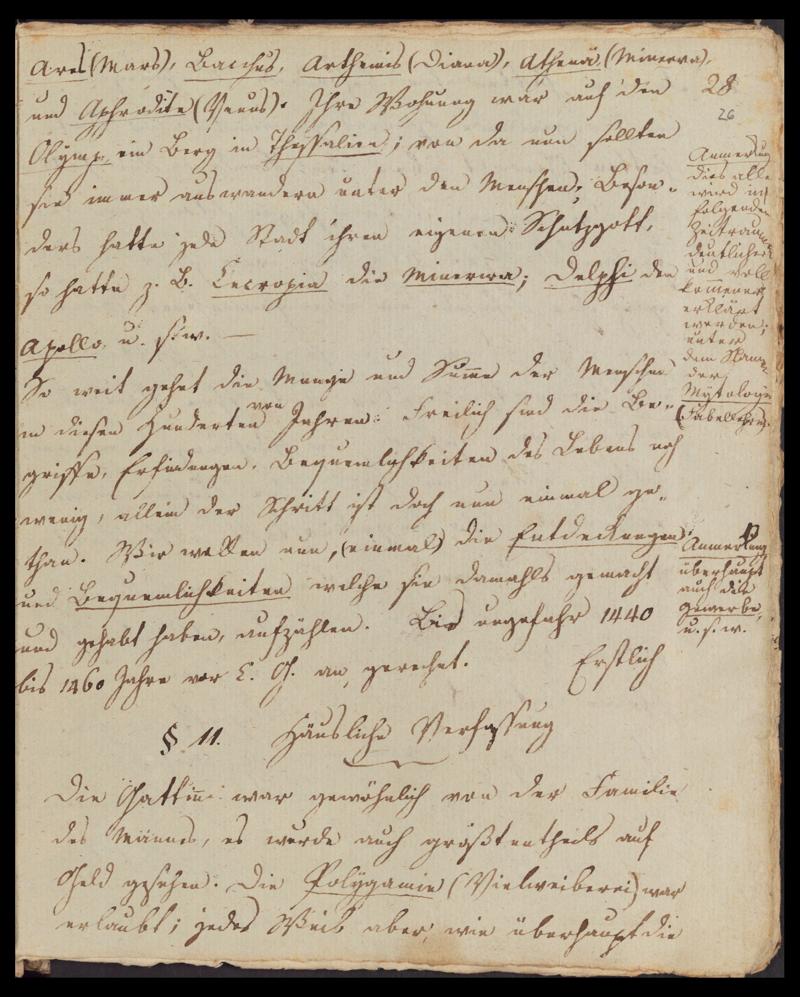 Ares (Mars), Bacchus, Arthemis (Diana), Athenä (Minerva),
und Aphrodite (Venus). Ihre Wohnung war auf den
Olymp, ein Berg in Thessalien; von da nun sollten
sie immer auswandern unter den Menschen; Beson-
ders hatte jede Stadt ihren eigenen Schutzgott,
so hatte z. B. Cecropia die Minerwa; Delphi den
Apollo, u. s. w. —
So weit gehet die Menge und Summe der Menschen
in diesen Hunderten von Jahren. Freilich sind die Be-
griffe, Erfindungen, Bequemlichkeiten des Lebens noch
wenig, allein der Schritt ist doch nun einmal ge-
than. Wir wollen nun, (einmal) die Entdeckungen
und Bequemlichkeiten welche sie damahls gemacht
und gehabt haben, aufzählen. Bis ungefähr 1440
bis 1460 Jahre vor C. G. an, gerechnet. Erstlich
§ 11. Häusliche Verfassung
Die Gattinn war gewöhnlich von der Familie
des Mannes, es wurde auch größtentheils auf
Geld gesehen. Die Polygamie (Vielweiberei) war
erlaubt; jedes Weib aber, wie überhaupt die
28
26
Anmerkung
dies alles
wird im
folgenden
Zeitraume
deutlicher
und voll
kommener
erklärt
werden;
unter
dem Namen
der
Mytologie
(Fabellehre).
Anmerkung
überhaupt
auch die
Gewerbe,
u. s. w.